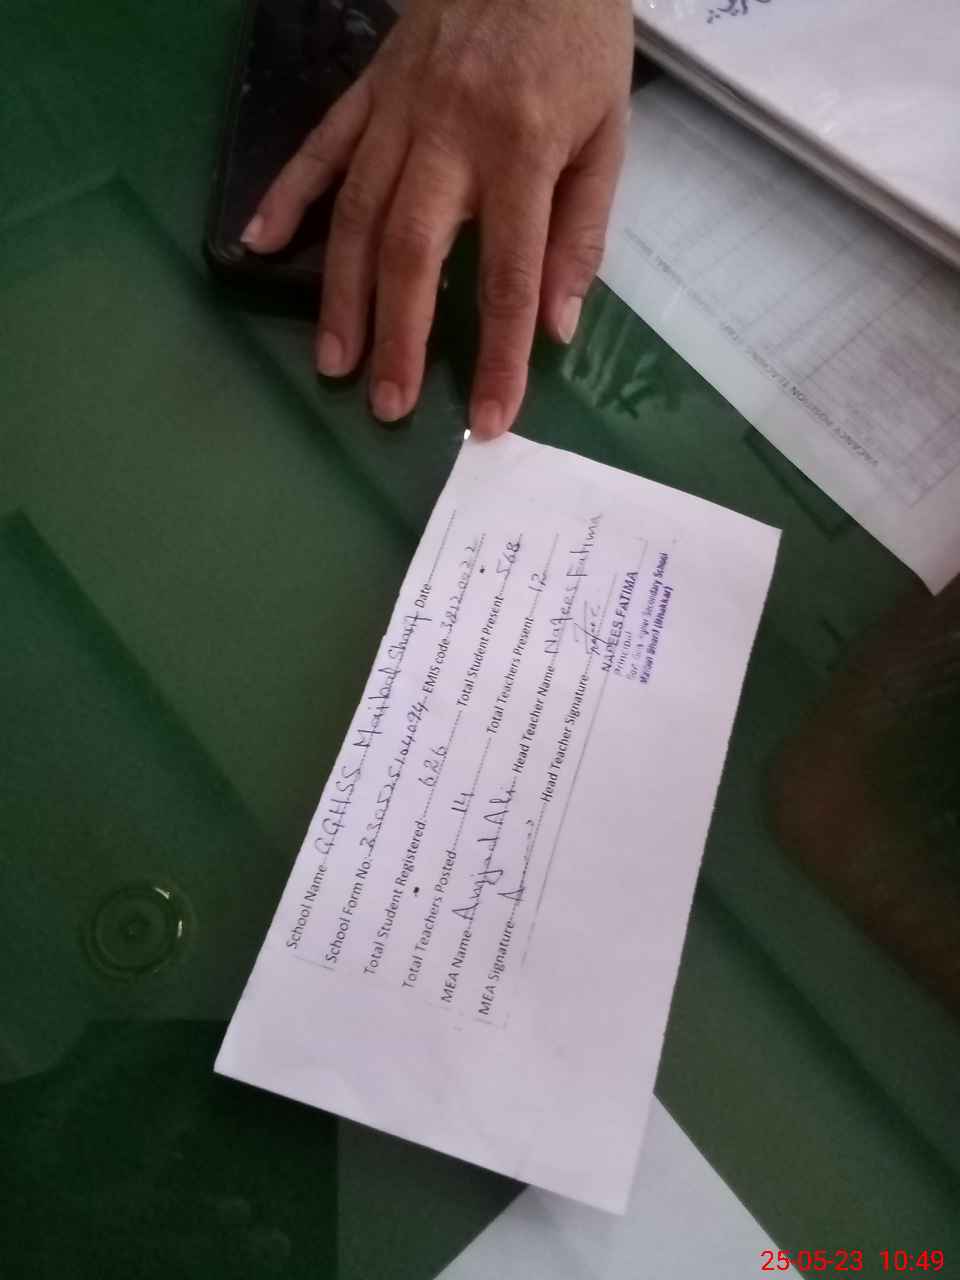 School Name GGHSS Maibal Sharif Date
School Form No: 230525104094 EMIS code 38120022
Total Student Registered: 626 Total Student Present 568
Total Teachers Posted 14 Total Teachers Present 12
MEA Name Amjad Ali Head Teacher Name Nafees Fatima
MEA Signature Head Teacher Signature
NAFEES FATIMA
Principal
Secondary School
(Bhakkar)
VACANCY POSITION TEACHING STAFF
25-05-23 10:49